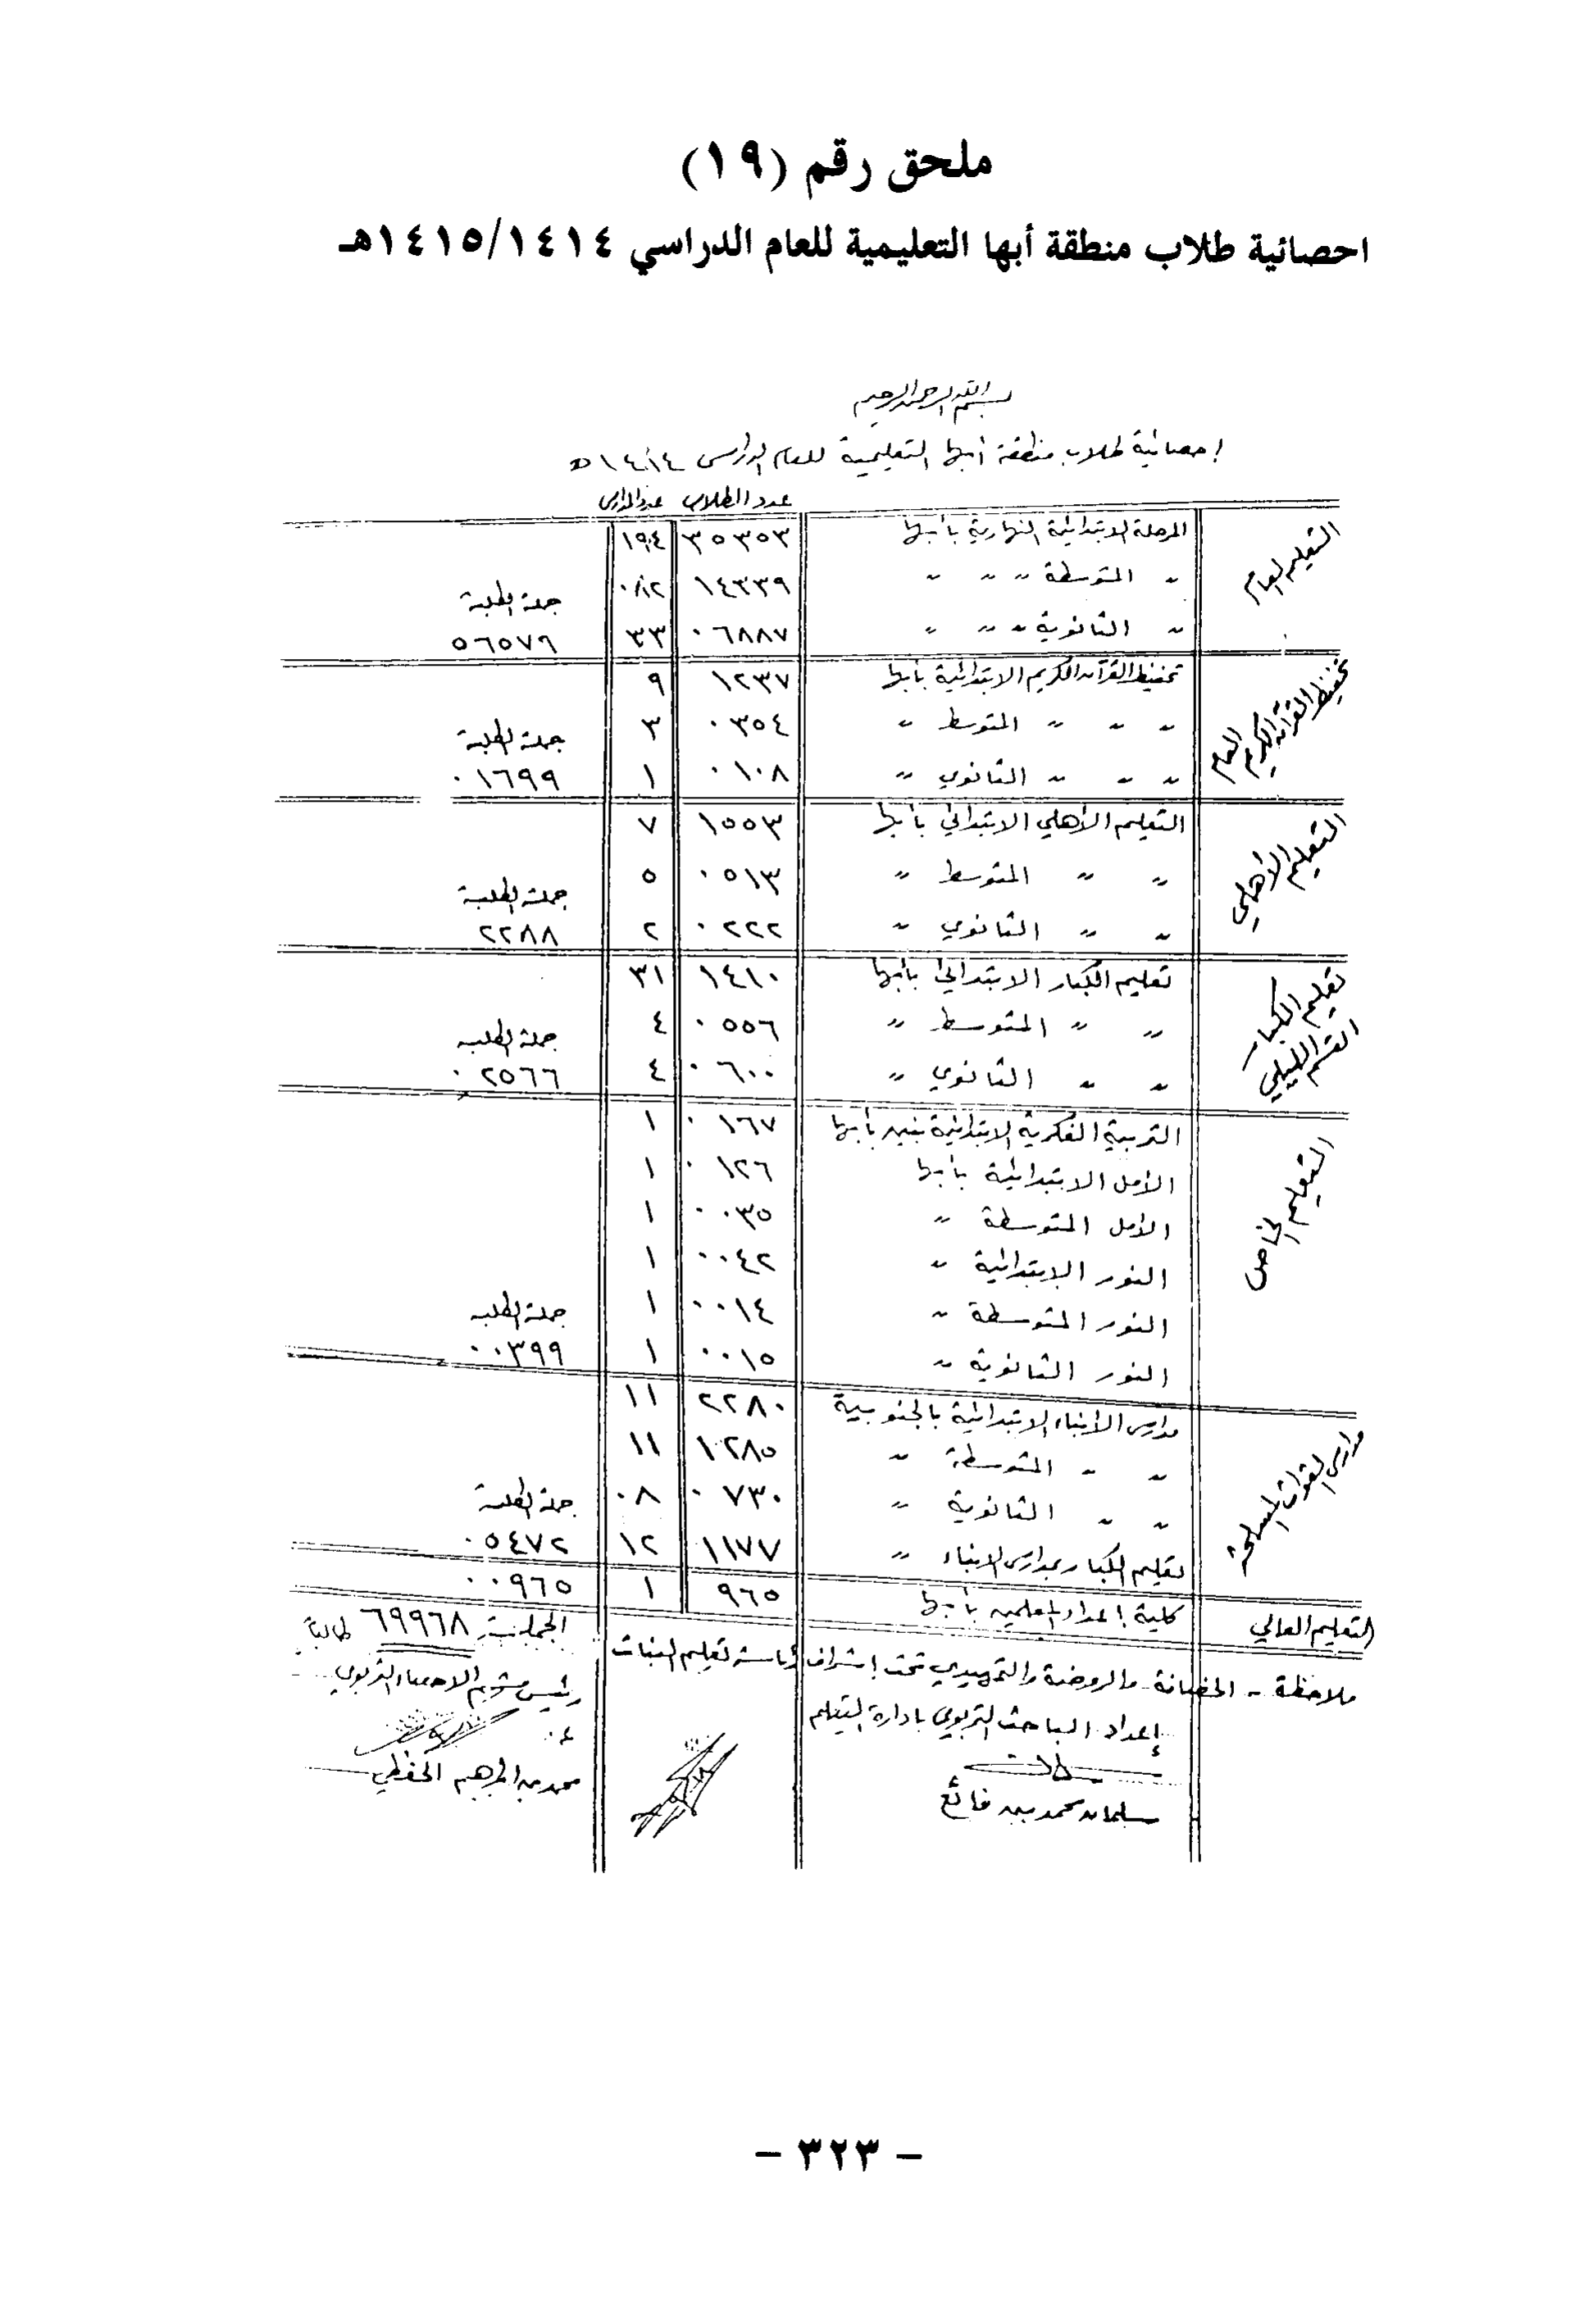 ملحق رقم (١٩)
احصائية طلاب منطقة أبها التعليمية للعام الدراسي ١٤١٥/١٤١٤هـ
بسم الله الرحمن الرحيم
إحصائية طلاب منطقة أبها التعليمية للعام الدراسي ١٤١٤هـ
عدد الطلاب عدد المدارس
التعليم العام
المرحلة الابتدائية النهارية بأبها ٣٥٣٥٣ ١٩٤
〃 المتوسطة 〃 〃 〃 ١٤٣٣٩ ٠٨٢ جملة الطلبة
〃 الثانوية 〃 〃 〃 ٠٦٨٨٧ ٣٣ ٥٦٥٧٩
تحفيظ القرآن الكريم العام
تحفيظ القرآن الكريم الابتدائية بأبها ١٢٣٧ ٩
〃 〃 〃 المتوسط 〃 ٠٣٥٤ ٣ جملة الطلبة
〃 〃 〃 الثانوي 〃 ٠١٠٨ ١ ٠١٦٩٩
التعليم الأهلي
التعليم الأهلي الابتدائي بأبها ١٥٥٣ ٧
〃 〃 المتوسط 〃 ٠٥١٣ ٥ جملة الطلبة
〃 〃 الثانوي 〃 ٠٢٢٢ ٢ ٢٢٨٨
تعليم الكبار
القسم الليلي
تعليم الكبار الابتدائي بأبها ١٤١٠ ٣١
〃 〃 المتوسط 〃 ٠٥٥٦ ٤ جملة الطلبه
〃 〃 الثانوي 〃 ٠٦٠٠ ٤ ٠٢٥٦٦
التعليم الخاص
التربية الفكرية الابتدائية بنين بأبها ٠١٦٧ ١
الأمل الابتدائية بأبها ٠١٢٦ ١
الأمل المتوسطة 〃 ٠٠٣٥ ١
النور الابتدائية 〃 ٠٠٤٢ ١
النور المتوسطة 〃 ٠٠١٤ ١ جملة الطلبه
النور الثانوية 〃 ٠٠١٥ ١ ٠٠٣٩٩
مدارس القوات المسلحة
مدارس الأبناء الابتدائية بالجنوبية ٢٢٨٠ ١١
〃 〃 المتوسطة 〃 ١٢٨٥ ١١
〃 〃 الثانوية 〃 ٠٧٣٠ ٠٨ جملة الطلبة
تعليم الكبار بمدارس الأبناء 〃 ١١٧٧ ١٢ ٠٥٤٧٢
التعليم العالي كلية إعداد المعلمين بأبها ٩٦٥ ١ ٠٠٩٦٥
الجملة ٦٩٩٦٨ طالباً
ملاحظة - الحضانة والروضة والتمهيدي تحت إشراف رئاسة تعليم البنات
إعداد الباحث التربوي بادارة التعليم
سلمان محمد بن فائع
رئيس قسم الاحصاء التربوي
محمد بن ابراهيم الحفظي
- ٣٢٣ -